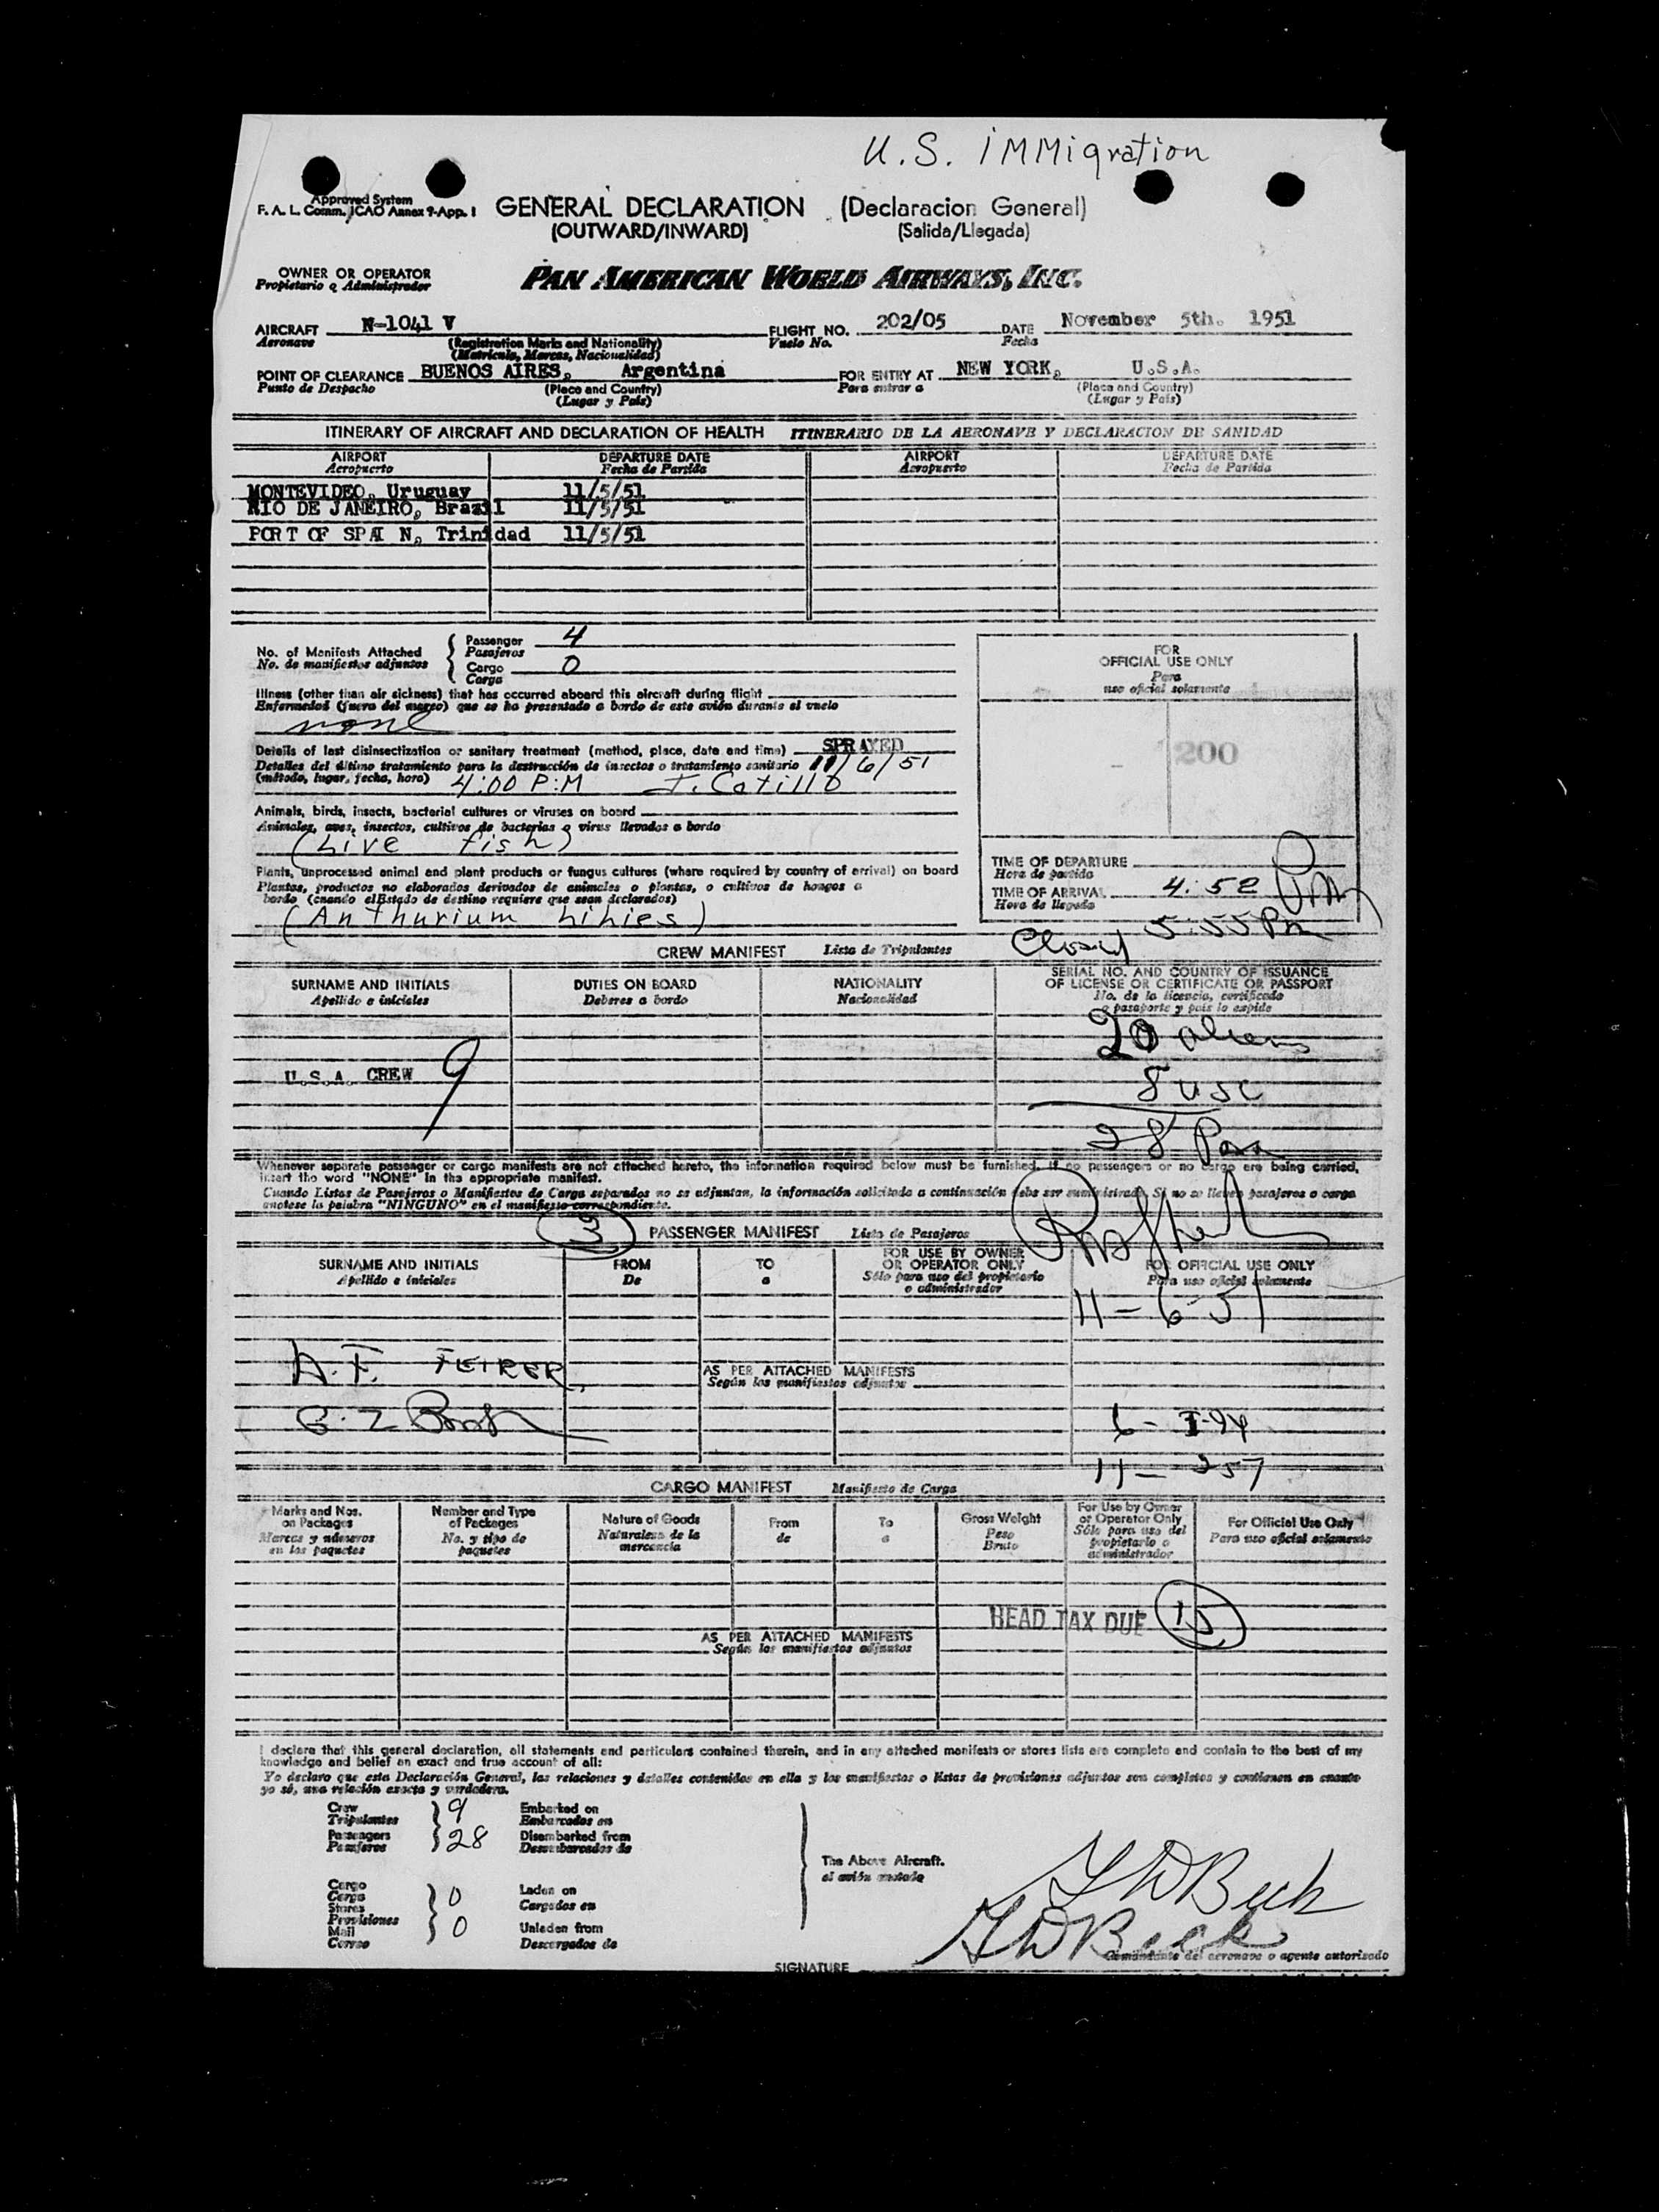 U.S. IMMigration
Approved System
F. A. L. Comm. ICAO Annex 9-App. I
GENERAL DECLARATION (Declaracion General)
(OUTWARD/INWARD) (Salida/Llegada)
OWNER OR OPERATOR
Propietario o Administrador
PAN AMERICAN WORLD AIRWAYS, INC.
AIRCRAFT N-1041 V FLIGHT NO. 202/05 DATE November 5th. 1951
Aeronave (Registration Marks and Nationality) Vuelo No. Fecha
(Matricula, Marcas, Nacionalidad)
POINT OF CLEARANCE BUENOS AIRES, Argentina FOR ENTRY AT NEW YORK, U.S.A.
Punto de Despacho (Place and Country) Para entrar a (Place and Country)
(Lugar y País) (Lugar y País)
ITINERARY OF AIRCRAFT AND DECLARATION OF HEALTH ITINERARIO DE LA AERONAVE Y DECLARACION DE SANIDAD
AIRPORT DEPARTURE DATE AIRPORT DEPARTURE DATE
Aeropuerto Fecha de Partida Aeropuerto Fecha de Partida
MONTEVIDEO, Uruguay 11/5/51
RIO DE JANEIRO, Brazil 11/5/51
PORT OF SPAI N, Trinidad 11/5/51
No. of Manifests Attached
No. de manifiestos adjuntos
Passenger 4
Pasajeros
Cargo 0
Carga
FOR
OFFICIAL USE ONLY
Para
uso oficial solamente
Illness (other than air sickness) that has occurred aboard this aircraft during flight
Enfermedad (fuera del mareo) que se ha presentado a bordo de este avión durante el vuelo
none
Details of last disinsectization or sanitary treatment (method, place, date and time) SPRAYED
Detalles del último tratamiento para la destrucción de insectos o tratamiento sanitario 11/6/51
(método, lugar, fecha, hora) 4:00 P:M J. Catillo
200
Animals, birds, insects, bacterial cultures or viruses on board
Animales, aves, insectos, cultivos de bacterias o virus llevados a bordo
(Live fish)
Plants, unprocessed animal and plant products or fungus cultures (where required by country of arrival) on board
Plantas, productos no elaborados derivados de animales o plantas, o cultivos de hongos a
bordo (cuando el Estado de destino requiere que sean declarados)
(Anthurium Lihies)
TIME OF DEPARTURE
Hora de partida
TIME OF ARRIVAL 4:52 Pm
Hora de llegada
Closed 5:55 Pm
CREW MANIFEST Lista de Tripulantes
SURNAME AND INITIALS DUTIES ON BOARD NATIONALITY SERIAL NO. AND COUNTRY OF ISSUANCE
OF LICENSE OR CERTIFICATE OR PASSPORT
Apellido e iniciales Deberes a bordo Nacionalidad No. de la licencia, certificado
o pasaporte y país lo expide
20 aliens
U.S.A. CREW 9
8 USC
28 Pax
Whenever separate passenger or cargo manifests are not attached hereto, the information required below must be furnished. If no passengers or no cargo are being carried,
insert the word "NONE" in the appropriate manifest.
Cuando Listas de Pasajeros o Manifiestos de Carga separados no se adjuntan, la información solicitada a continuación debe ser suministrada. Si no se lleven pasajeros o carga
anotese la palabra "NINGUNO" en el manifiesto correspondiente.
3 PASSENGER MANIFEST Lista de Pasajeros
SURNAME AND INITIALS FROM TO FOR USE BY OWNER
OR OPERATOR ONLY FOR OFFICIAL USE ONLY
Apellido e iniciales De a Sólo para uso del propietario
o administrador Para uso oficial solamente
11-6-51
A.F. FEIRER
AS PER ATTACHED MANIFESTS
Según los manifiestos adjuntos
11-257
CARGO MANIFEST Manifiesto de Carga
Marks and Nos.
on Packages
Marcas y números
en los paquetes
Number and Type
of Packages
No. y tipo de
paquetes
Nature of Goods
Naturaleza de la
mercancía
From
de
To
a
Gross Weight
Peso
Bruto
For Use by Owner
or Operator Only
Sólo para uso del
propietario o
administrador
For Official Use Only
Para uso oficial solamente
HEAD TAX DUE 15
AS PER ATTACHED MANIFESTS
Según los manifiestos adjuntos
I declare that this general declaration, all statements and particulars contained therein, and in any attached manifests or stores lists are complete and contain to the best of my
knowledge and belief an exact and true account of all:
Yo declaro que esta Declaración General, las relaciones y detalles contenidos en ella y los manifiestos o listas de provisiones adjuntos son completos y contienen en cuanto
yo sé, una relación exacta y verdadera.
Crew 9 Embarked on
Tripulantes Embarcados en
Passengers 28 Disembarked from
Pasajeros Desembarcados de
The Above Aircraft.
el avión anotado
Cargo 0 Laden on
Carga Cargados en
Stores
Provisiones 0 Unladen from
Mail
Correo Descargados de
H D Beck
H D Beck
Comandante del aeronave o agente autorizado
SIGNATURE